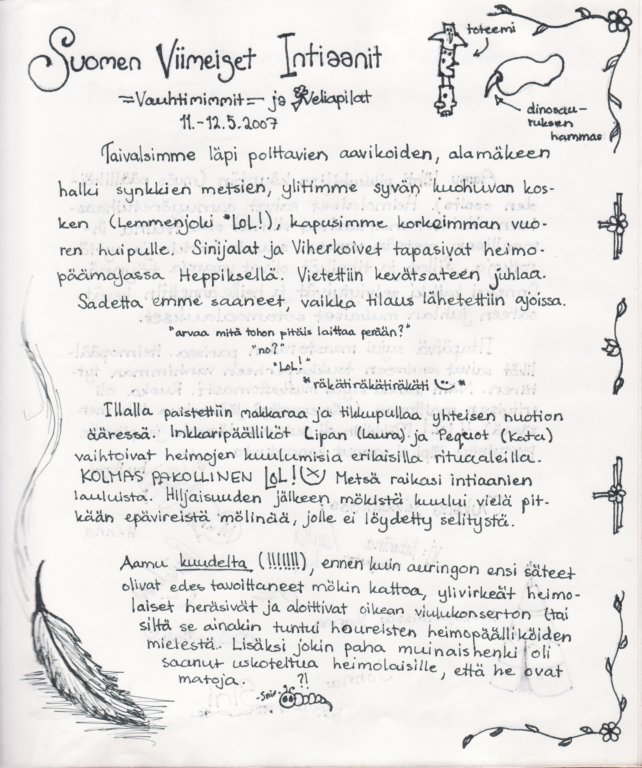 Suomen Viimeiset Intiaanit
=Vauhtimimmit= ja Neliapilat
11.-12.5.2007
toteemi
dinosau-
ruksen
hammas
Taivalsimme läpi polttavien aavikoiden, alamäkeen
halki synkkien metsien, ylitimme syvän kuohuvan kos-
ken (Lemmenjoki *LOL!), kapusimme korkeimman vuo-
ren huipulle. Sinijalat ja Viherkoivet tapasivat heimo-
päämajassa Heppiksellä. Vietettiin kevätsateen juhlaa.
Sadetta emme saaneet, vaikka tilaus lähetettiin ajoissa.
"arvaa mitä tohon pitäis laittaa perään?"
"no?"
"LOL!"
*räkätiräkätiräkäti *
Illalla paistettiin makkaraa ja tikkupullaa yhteisen nuotion
ääressä. Inkkaripäälliköt Lipan (Laura) ja Pequot (Kata)
vaihtoivat heimojen kuulumisia erilaisilla rituaaleilla.
KOLMAS PAKOLLINEN LOL! Metsä raikasi intiaanien
lauluista. Hiljaisuuden jälkeen mökistä kuului vielä pit-
kään epävireistä mölinää, jolle ei löydetty selitystä.
Aamu kuudelta (!!!!!!!!), ennen kuin auringon ensi säteet
olivat edes tavoittaneet mökin kattoa, ylivirkeät heimo-
laiset heräsivät ja aloittivat oikean viulukonserton (tai
siltä se ainakin tuntui houreisten heimopäälliköiden
mielestä. Lisäksi jokin paha muinaishenki oli
saanut uskoteltua heimolaisille, että he ovat
matoja.
?!
-Snif-